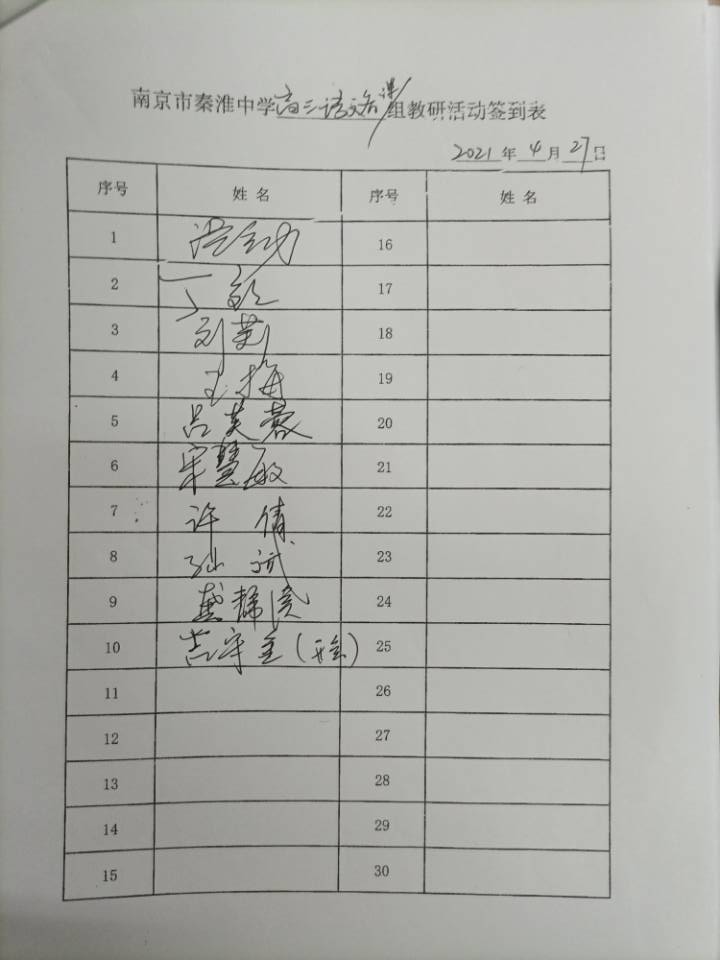 南京市秦淮中学高三语文备课组教研活动签到表
2021年4月27日
序号 姓名 序号 姓名
1 16
2 丁 17
3 刘莉 18
4 王梅 19
5 吕芙蓉 20
6 宋慧敏 21
7 许倩 22
8 23
9 戴静 24
10 吉守金(开会) 25
11 26
12 27
13 28
14 29
15 30